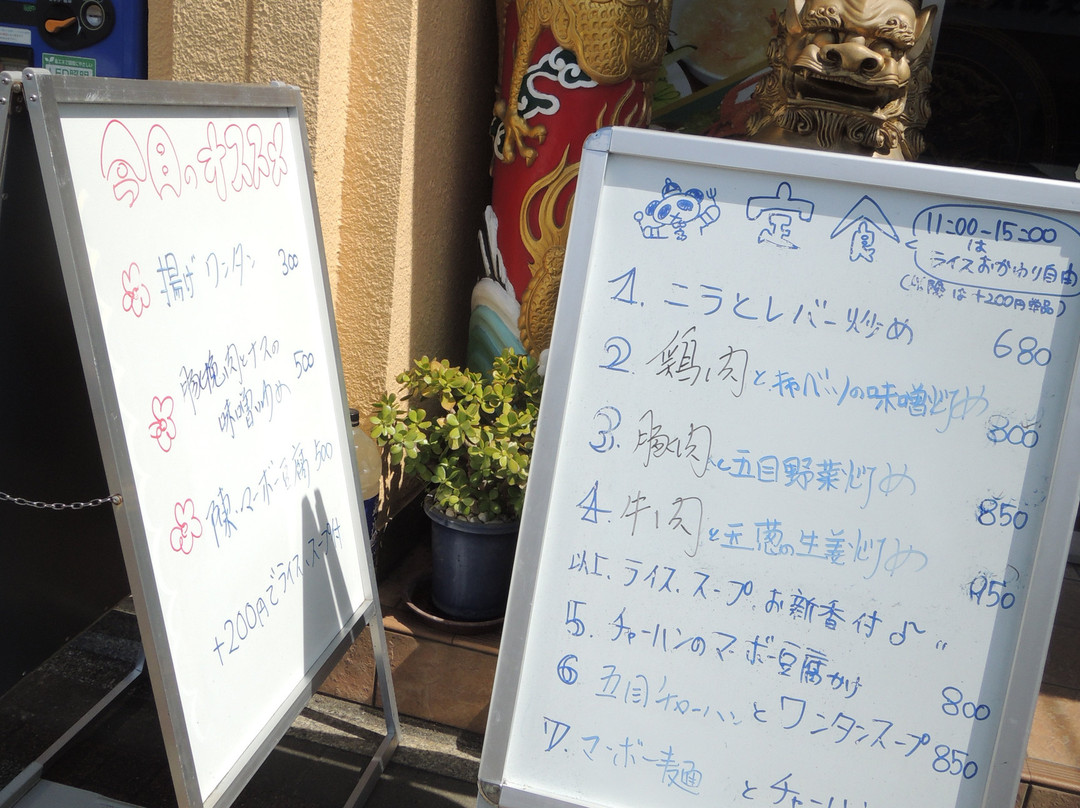 今月のオススメ
揚げワンタン 300
豚挽肉とナスの
味噌炒め 500
陳マーボー豆腐 500
+200円でライス、スープ付
定食
11:00-15:00
は
ライスおかわり自由
1. ニラとレバー炒め 680
2. 鶏肉とキャベツの味噌炒め 800
3. 豚肉と五目野菜炒め 850
4. 牛肉と玉葱の生姜炒め 950
以上、ライス、スープ、お新香付♪
5. チャーハンのマーボー豆腐かけ 800
6 五目チャーハンとワンタンスープ 850
7. マーボー麺 とチャーハン